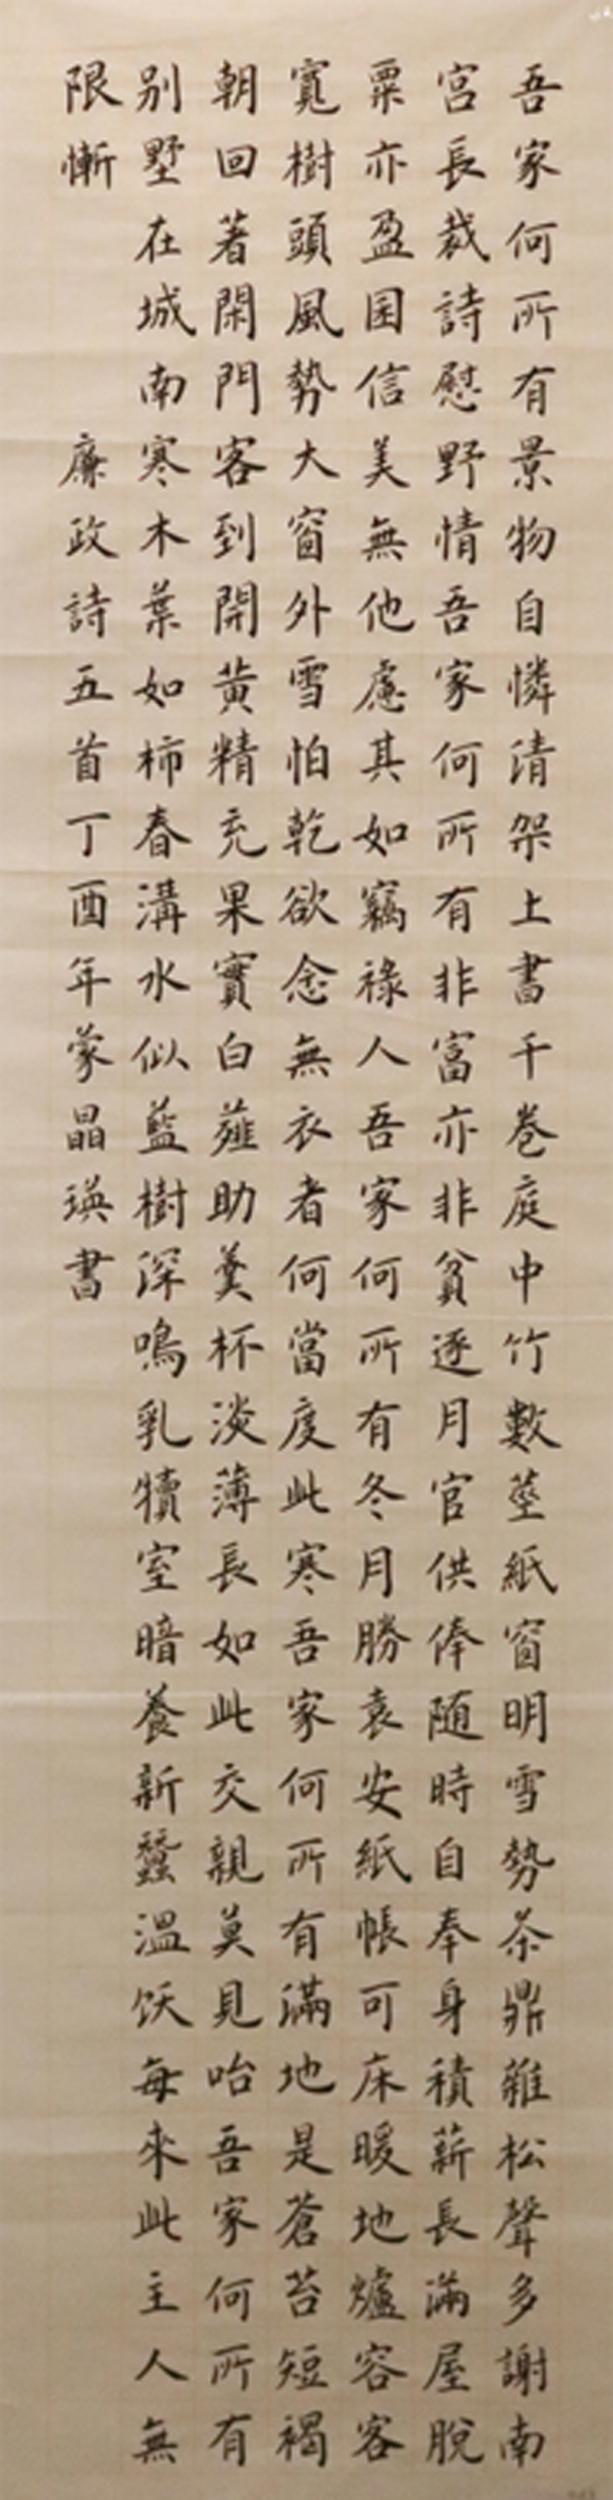 吾家何所有景物自憐清架上書千卷庭中竹數莖紙窗明雪勢茶鼎雜松聲多謝南
宮長裁詩慰野情吾家何所有非富亦非貧逐月官供俸隨時自奉身積薪長滿屋脫
粟亦盈囷信美無他慮其如竊祿人吾家何所有冬月勝袁安紙帳可床暖地爐容客
寬樹頭風勢大窗外雪怕乾欲念無衣者何當度此寒吾家何所有滿地是蒼苔短褐
朝回著閑門客到開黃精充果實白薤助羹杯淡薄長如此交親莫見咍吾家何所有
別墅在城南寒木葉如柿春溝水似藍樹深鳴乳犢室暗養新蠶溫飫每來此主人無
限慚
廉政詩五首丁酉年蒙晶瑛書